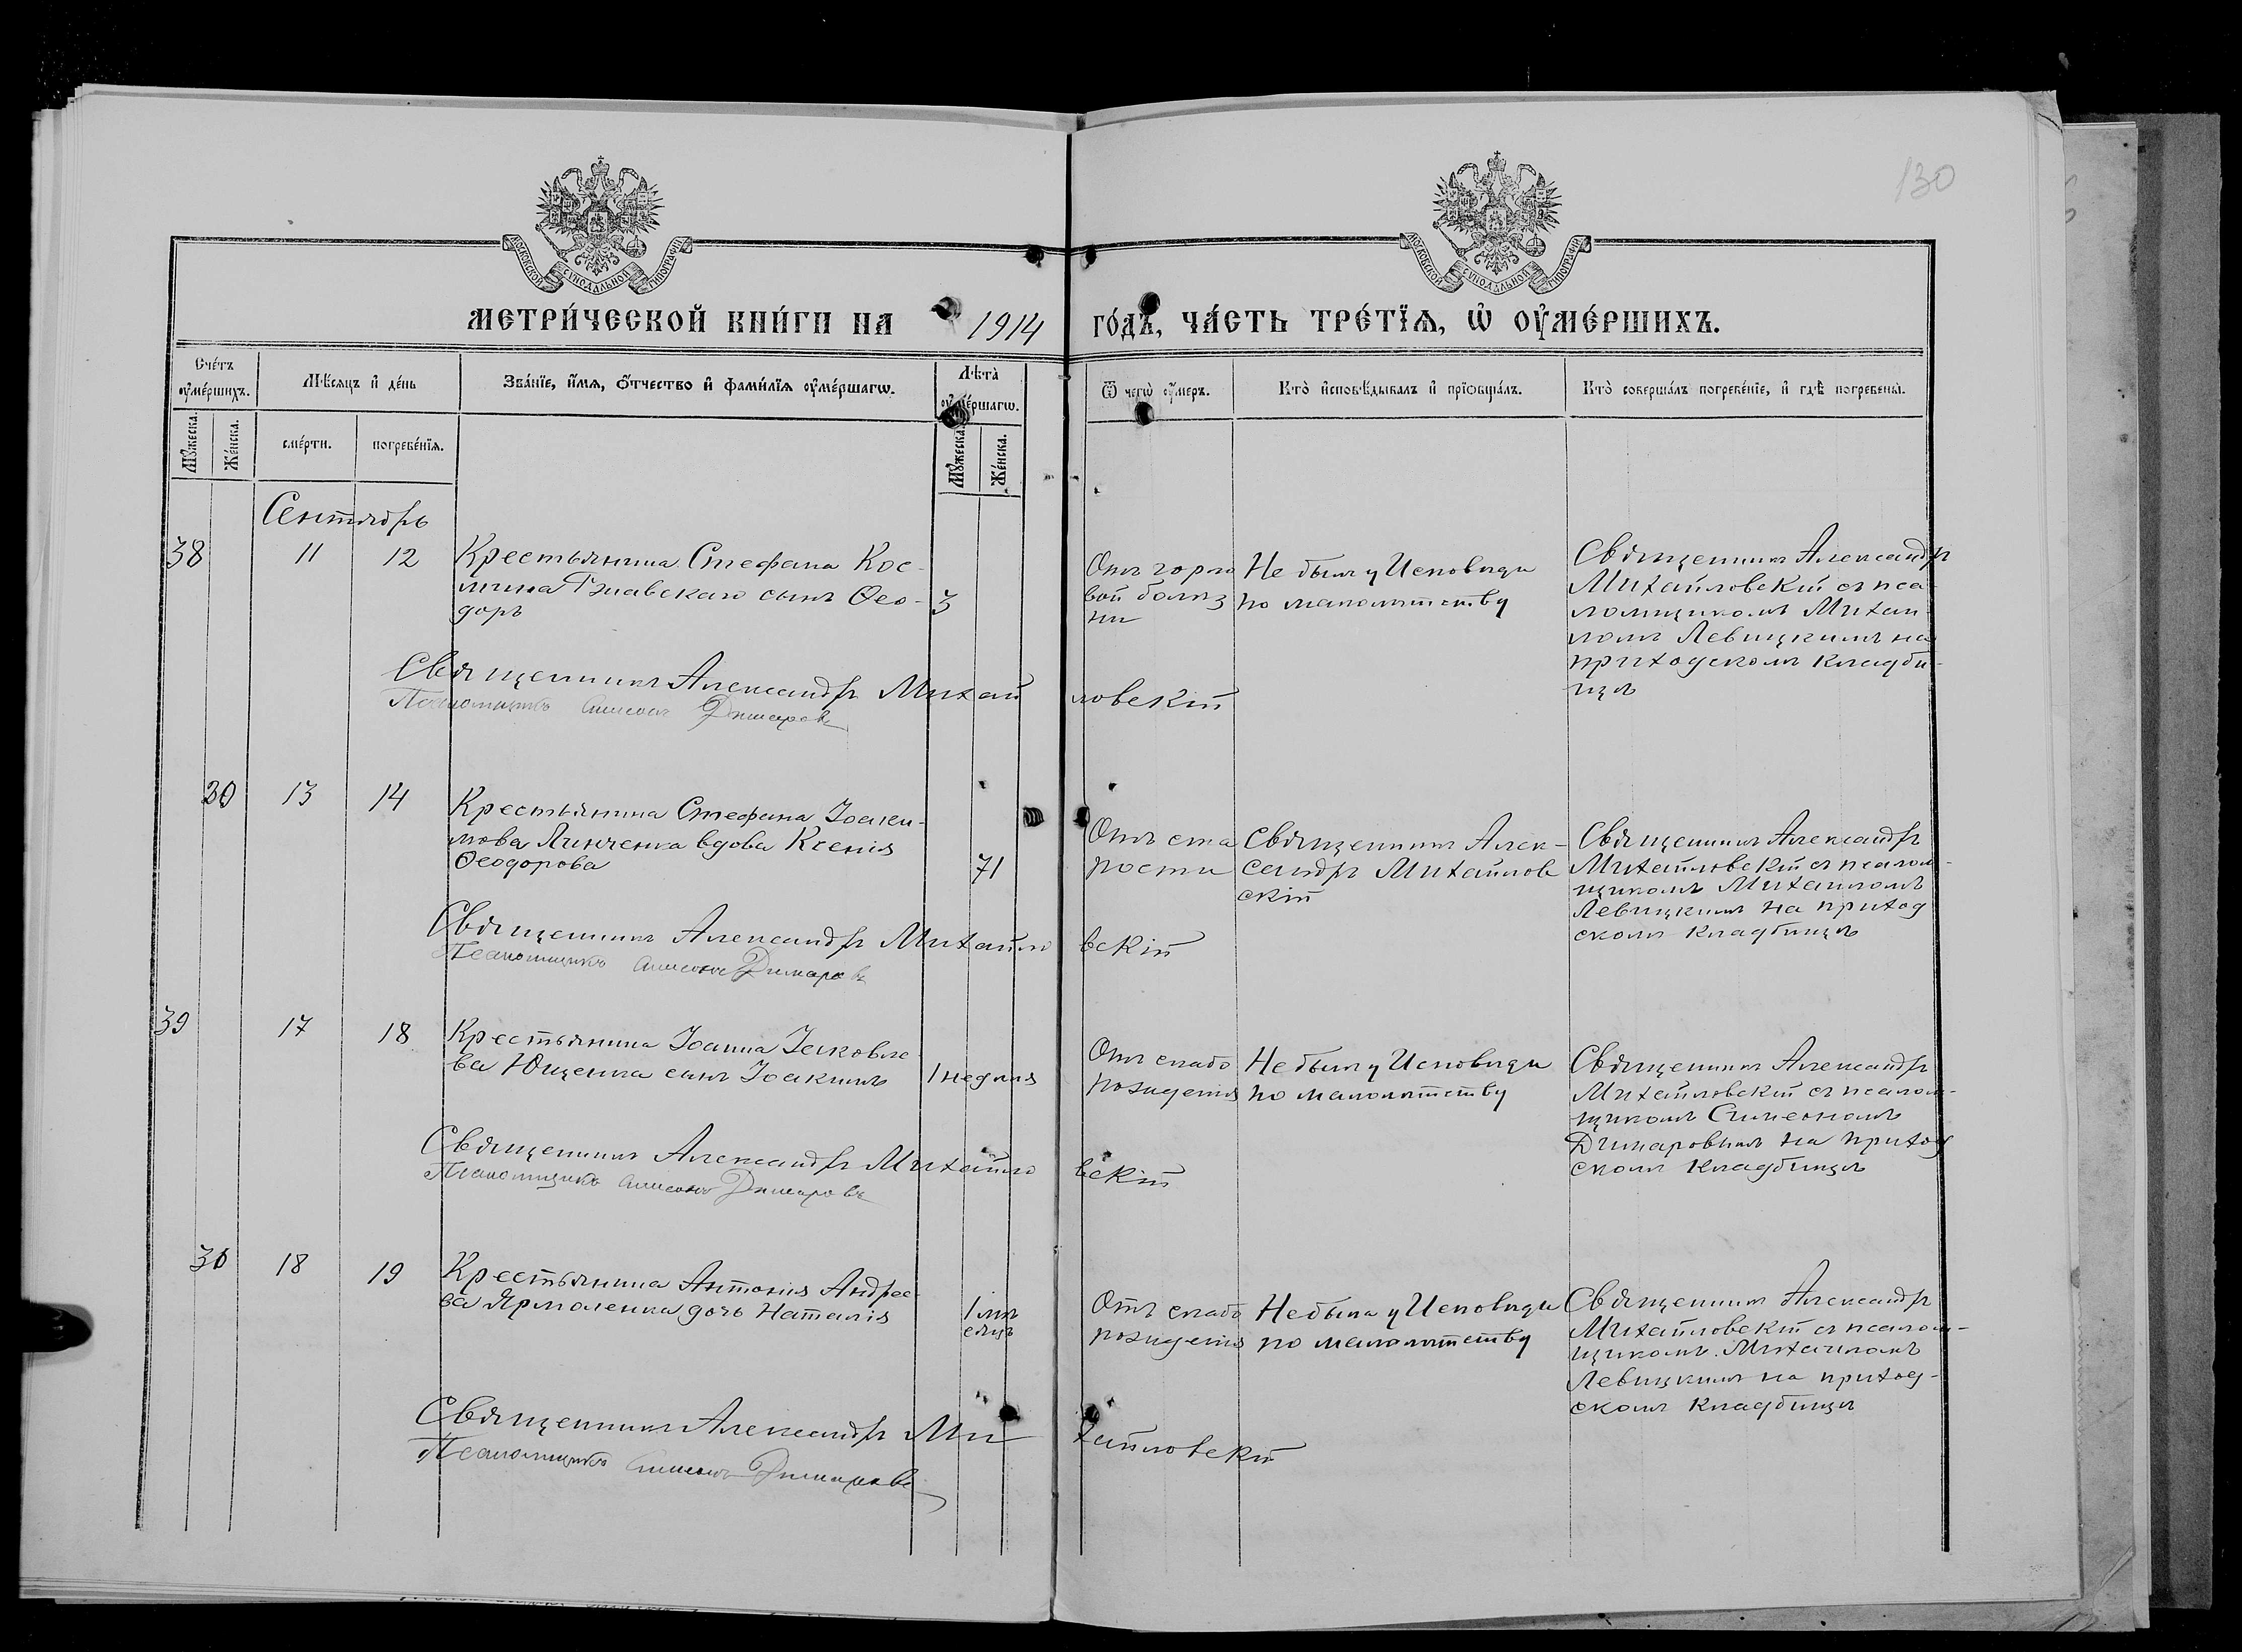 130
МОСКОВСКОЙ СѴНОДАЛЬНОЙ ТИПОГРАФІИ
МОСКОВСКОЙ СѴНОДАЛЬНОЙ ТИПОГРАФІИ
МЕТРИ́ЧЕСКОЙ КНИ́ГИ НА 1914 ГО́ДЪ, ЧА́СТЬ ТРЕ́ТЇѦ, Ѡ҆ ОУ҆МЕ́РШИХЪ.
Сче́тъ оу҆ме́ршихъ.
Мѣ́сяцъ и҆ де́нь
Зва́нїе, и҆́мѧ, ѻ҆́тчество и҆ фами́лїѧ оу҆ме́ршагѡ.
Лѣта̀ оу҆ме́ршагѡ.
Ѿ чегѡ̀ оу҆́меръ.
Кто̀ и҆сповѣ́дывалъ и҆ прїѡбща́лъ.
Кто̀ соверша́лъ погребе́нїе, и҆ гдѣ̀ погребены̀.
Мꙋ́жеска.
Же́нска.
сме́рти.
погребе́нїѧ.
Мꙋ́жеска.
Же́нска.
Сентябрь
38
11
12
Крестьянина Стефана Кос-
мина сынъ Ѳео-
доръ
3
Отъ горло
вой болѣз
ни
Не былъ у Исповѣди
по малолѣтству
Священникъ Александръ
Михайловскій съ пса-
ломщикомъ Михаи-
ломъ Левицкимъ на
приходскомъ кладби-
щѣ
Священникъ Александръ Михайловскій
Псаломщикъ Симеонъ Димаровъ
30
13
14
Крестьянина Стефана Іоаки-
мова Линченка вдова Ксенія
Ѳеодорова
71
Отъ ста
рости
Священникъ Алек-
сандръ Михайлов
скій
Священникъ Александръ
Михайловскій съ псалом-
щикомъ Михаиломъ
Левицкимъ на приход
скомъ кладбищѣ
Священникъ Александръ Михайловскій
Псаломщикъ Симеонъ Димаровъ
39
17
18
Крестьянина Іоанна Іаковле-
ва Ющенка сынъ Іоакимъ
1 недѣля
Отъ слабо
рожденія
Не былъ у Исповѣди
по малолѣтству
Священникъ Александръ
Михайловскій съ псалом-
щикомъ Симеономъ
Димаровымъ на приход
скомъ кладбищѣ
Священникъ Александръ Михайловскій
Псаломщикъ Симеонъ Димаровъ
18
19
Крестьянина Антонія Андрее-
ва Ярмоленка дочь Наталія
1 мѣ
сяцъ
Отъ слабо
рожденія
Не была у Исповѣди
по малолѣтству
Священникъ Александръ
Михайловскій съ псалом-
щикомъ Михаиломъ
Левицкимъ на приход-
скомъ кладбищѣ
Священникъ Александръ Михайловскій
Псаломщикъ Симеонъ Димаровъ